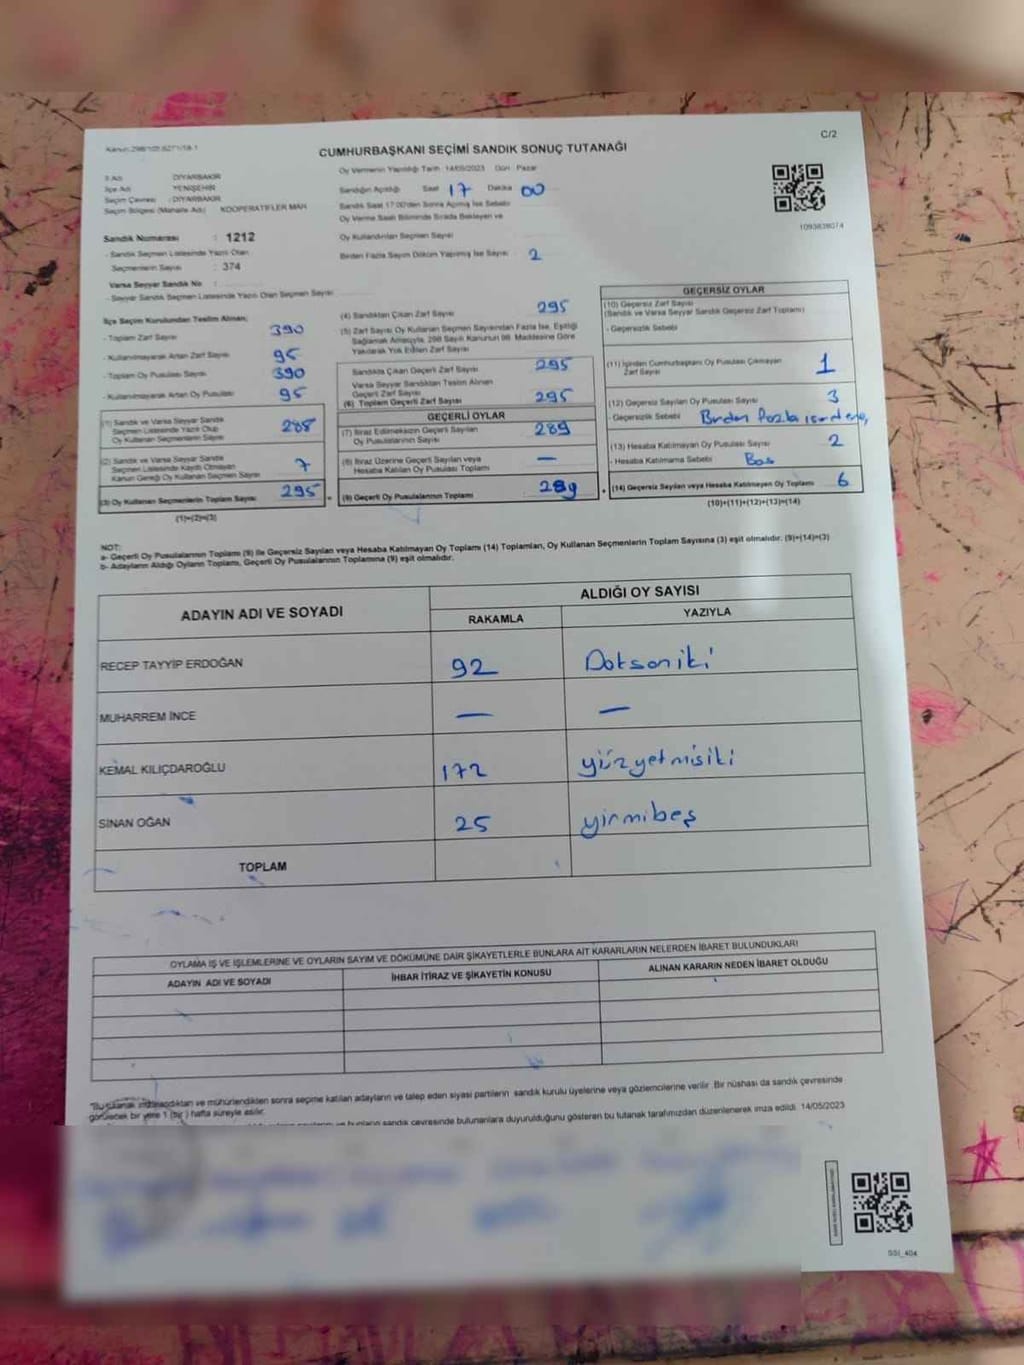 Kanun:298/105,6271/18-1
C/2
CUMHURBAŞKANI SEÇİMİ SANDIK SONUÇ TUTANAĞI
Oy Vermenin Yapıldığı Tarih : 14/05/2023 Gün : Pazar
İl Adı : DİYARBAKIR
İlçe Adı : YENİŞEHİR
Seçim Çevresi : DİYARBAKIR
Seçim Bölgesi (Mahalle Adı) : KOOPERATİFLER MAH.
Sandığın Açıldığı Saat 17 Dakika 00
Sandık Saat 17:00'den Sonra Açılmış İse Sebebi
Oy Verme Saati Bitiminde Sırada Bekleyen ve
Oy Kullandırılan Seçmen Sayısı
Birden Fazla Sayım Döküm Yapılmış İse Sayısı : 2
1093838074
Sandık Numarası : 1212
- Sandık Seçmen Listesinde Yazılı Olan
Seçmenlerin Sayısı : 374
Varsa Seyyar Sandık No :
- Seyyar Sandık Seçmen Listesinde Yazılı Olan Seçmen Sayısı
İlçe Seçim Kurulundan Teslim Alınan;
- Toplam Zarf Sayısı 390
- Kullanılmayarak Artan Zarf Sayısı 95
- Toplam Oy Pusulası Sayısı 390
- Kullanılmayarak Artan Oy Pusulası 95
(1) Sandık ve Varsa Seyyar Sandık
Seçmen Listesinde Yazılı Olup
Oy Kullanan Seçmenlerin Sayısı 288
(2) Sandık ve Varsa Seyyar Sandık
Seçmen Listesinde Kaydı Olmayan
Kanun Gereği Oy Kullanan Seçmen Sayısı 7
(3) Oy Kullanan Seçmenlerin Toplam Sayısı 295
(1)+(2)=(3)
(4) Sandıktan Çıkan Zarf Sayısı 295
(5) Zarf Sayısı Oy Kullanan Seçmen Sayısından Fazla İse, Eşitliği
Sağlamak Amacıyla, 298 Sayılı Kanunun 98. Maddesine Göre
Yakılarak Yok Edilen Zarf Sayısı
Sandıkta Çıkan Geçerli Zarf Sayısı 295
Varsa Seyyar Sandıktan Teslim Alınan
Geçerli Zarf Sayısı
(6) Toplam Geçerli Zarf Sayısı 295
GEÇERLİ OYLAR
(7) İtiraz Edilmeksizin Geçerli Sayılan
Oy Pusulalarının Sayısı 289
(8) İtiraz Üzerine Geçerli Sayılan veya
Hesaba Katılan Oy Pusulası Toplamı —
(9) Geçerli Oy Pusulalarının Toplamı 289
GEÇERSİZ OYLAR
(10) Geçersiz Zarf Sayısı
(Sandık ve Varsa Seyyar Sandık Geçersiz Zarf Toplamı)
- Geçersizlik Sebebi
(11) İçinden Cumhurbaşkanı Oy Pusulası Çıkmayan
Zarf Sayısı 1
(12) Geçersiz Sayılan Oy Pusulası Sayısı 3
- Geçersizlik Sebebi Birden fazla
(13) Hesaba Katılmayan Oy Pusulası Sayısı 2
- Hesaba Katılmama Sebebi Boş
(14) Geçersiz Sayılan veya Hesaba Katılmayan Oy Toplamı 6
(10)+(11)+(12)+(13)=(14)
NOT:
a- Geçerli Oy Pusulalarının Toplamı (9) ile Geçersiz Sayılan veya Hesaba Katılmayan Oy Toplamı (14) Toplamları, Oy Kullanan Seçmenlerin Toplam Sayısına (3) eşit olmalıdır. (9)+(14)=(3)
b- Adayların Aldığı Oyların Toplamı, Geçerli Oy Pusulalarının Toplamına (9) eşit olmalıdır.
ADAYIN ADI VE SOYADI
ALDIĞI OY SAYISI
RAKAMLA YAZIYLA
RECEP TAYYİP ERDOĞAN 92 Doksaniki
MUHARREM İNCE — —
KEMAL KILIÇDAROĞLU 172 yüzyetmişiki
SİNAN OĞAN 25 yirmibeş
TOPLAM
OYLAMA İŞ VE İŞLEMLERİNE VE OYLARIN SAYIM VE DÖKÜMÜNE DAİR ŞİKAYETLERLE BUNLARA AİT KARARLARIN NELERDEN İBARET BULUNDUKLARI
ADAYIN ADI VE SOYADI İHBAR İTİRAZ VE ŞİKAYETİN KONUSU ALINAN KARARIN NEDEN İBARET OLDUĞU
"Bu tutanak imzalandıktan ve mühürlendikten sonra seçime katılan adayların ve talep eden siyasi partilerin sandık kurulu üyelerine veya gözlemcilerine verilir. Bir nüshası da sandık çevresinde
görülecek bir yere 1 (bir) hafta süreyle asılır.
sandık çevresinde bulunanlara duyurulduğunu gösteren bu tutanak tarafımızdan düzenlenerek imza edildi. 14/05/2023
SSI_404